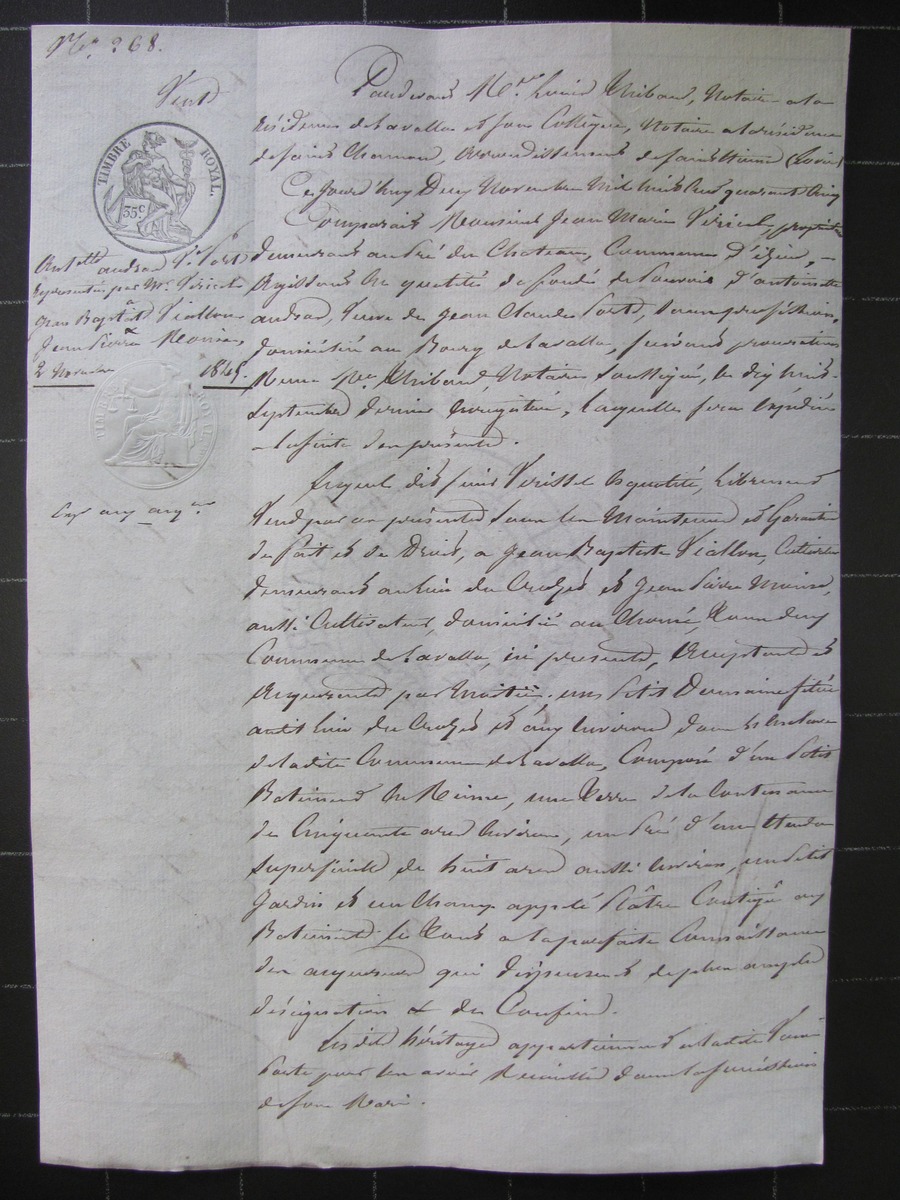 N.o 268.
Vente
TIMBRE ROYAL.
35c
Antte audras Ve Port
représentée par Mr. Véricel
Jean Baptte Viallon
Jean Pierre
2 Novembre 1845.
Pardevant Me. Thibaud, Notaire à la
résidence de Lavalla et son Collègue, Notaire à la résidence
de Saint Chamond, arrondissement de Saint Etienne (Loire)
Ce Jourd'huy Deux Novembre Mil huit Cent quarante Cinq
Comparait Monsieur Jean Marie Véricel, propriétaire
demeurant au Pré du Chateau, Commune d'Izieux,
Agissant en qualité de fondé de pouvoir d'antoinette
audras, Veuve de Jean Claude Port, sans profession,
domiciliée au Bourg de Lavalla, suivant procuration
Reçue par Thibaud, Notaire soussigné, le dix huit
Septembre dernier enregistrée, laquelle sera expédiée
à la suite des présentes.
Lequel dit sieur Véricel en qualité, librement
Vend par ces présentes sous les Maintenue et Garantie
de fait et de Droit, à Jean Baptiste Viallon, Cultivateur
demeurant au lieu du Crozet et Jean Pierre
aussi Cultivateur, domicilié au, tous deux
Commune de Lavalla, ici présents, acceptants et
acquéreurs par moitié. un Petit Domaine situé
audit lieu du Crozet et aux environs dans
de ladite Commune de Lavalla, Composé d'un Petit
Batiment en Ruine, une Terre de la Contenance
de Cinquante ares environ, un Pré d'une étendue
superficielle de huit ares aussi environ, un petit
Jardin et un Champ appelé Plâtre Contigu aux
Batiments. Le tout à la parfaite Connaissance
des acquéreurs qui dispensent de plus ample
désignation et de Confins.
Lesdits héritages appartiennent à ladite Veuve
Port pour les avoir Recueillis dans la succession
de son Mari.